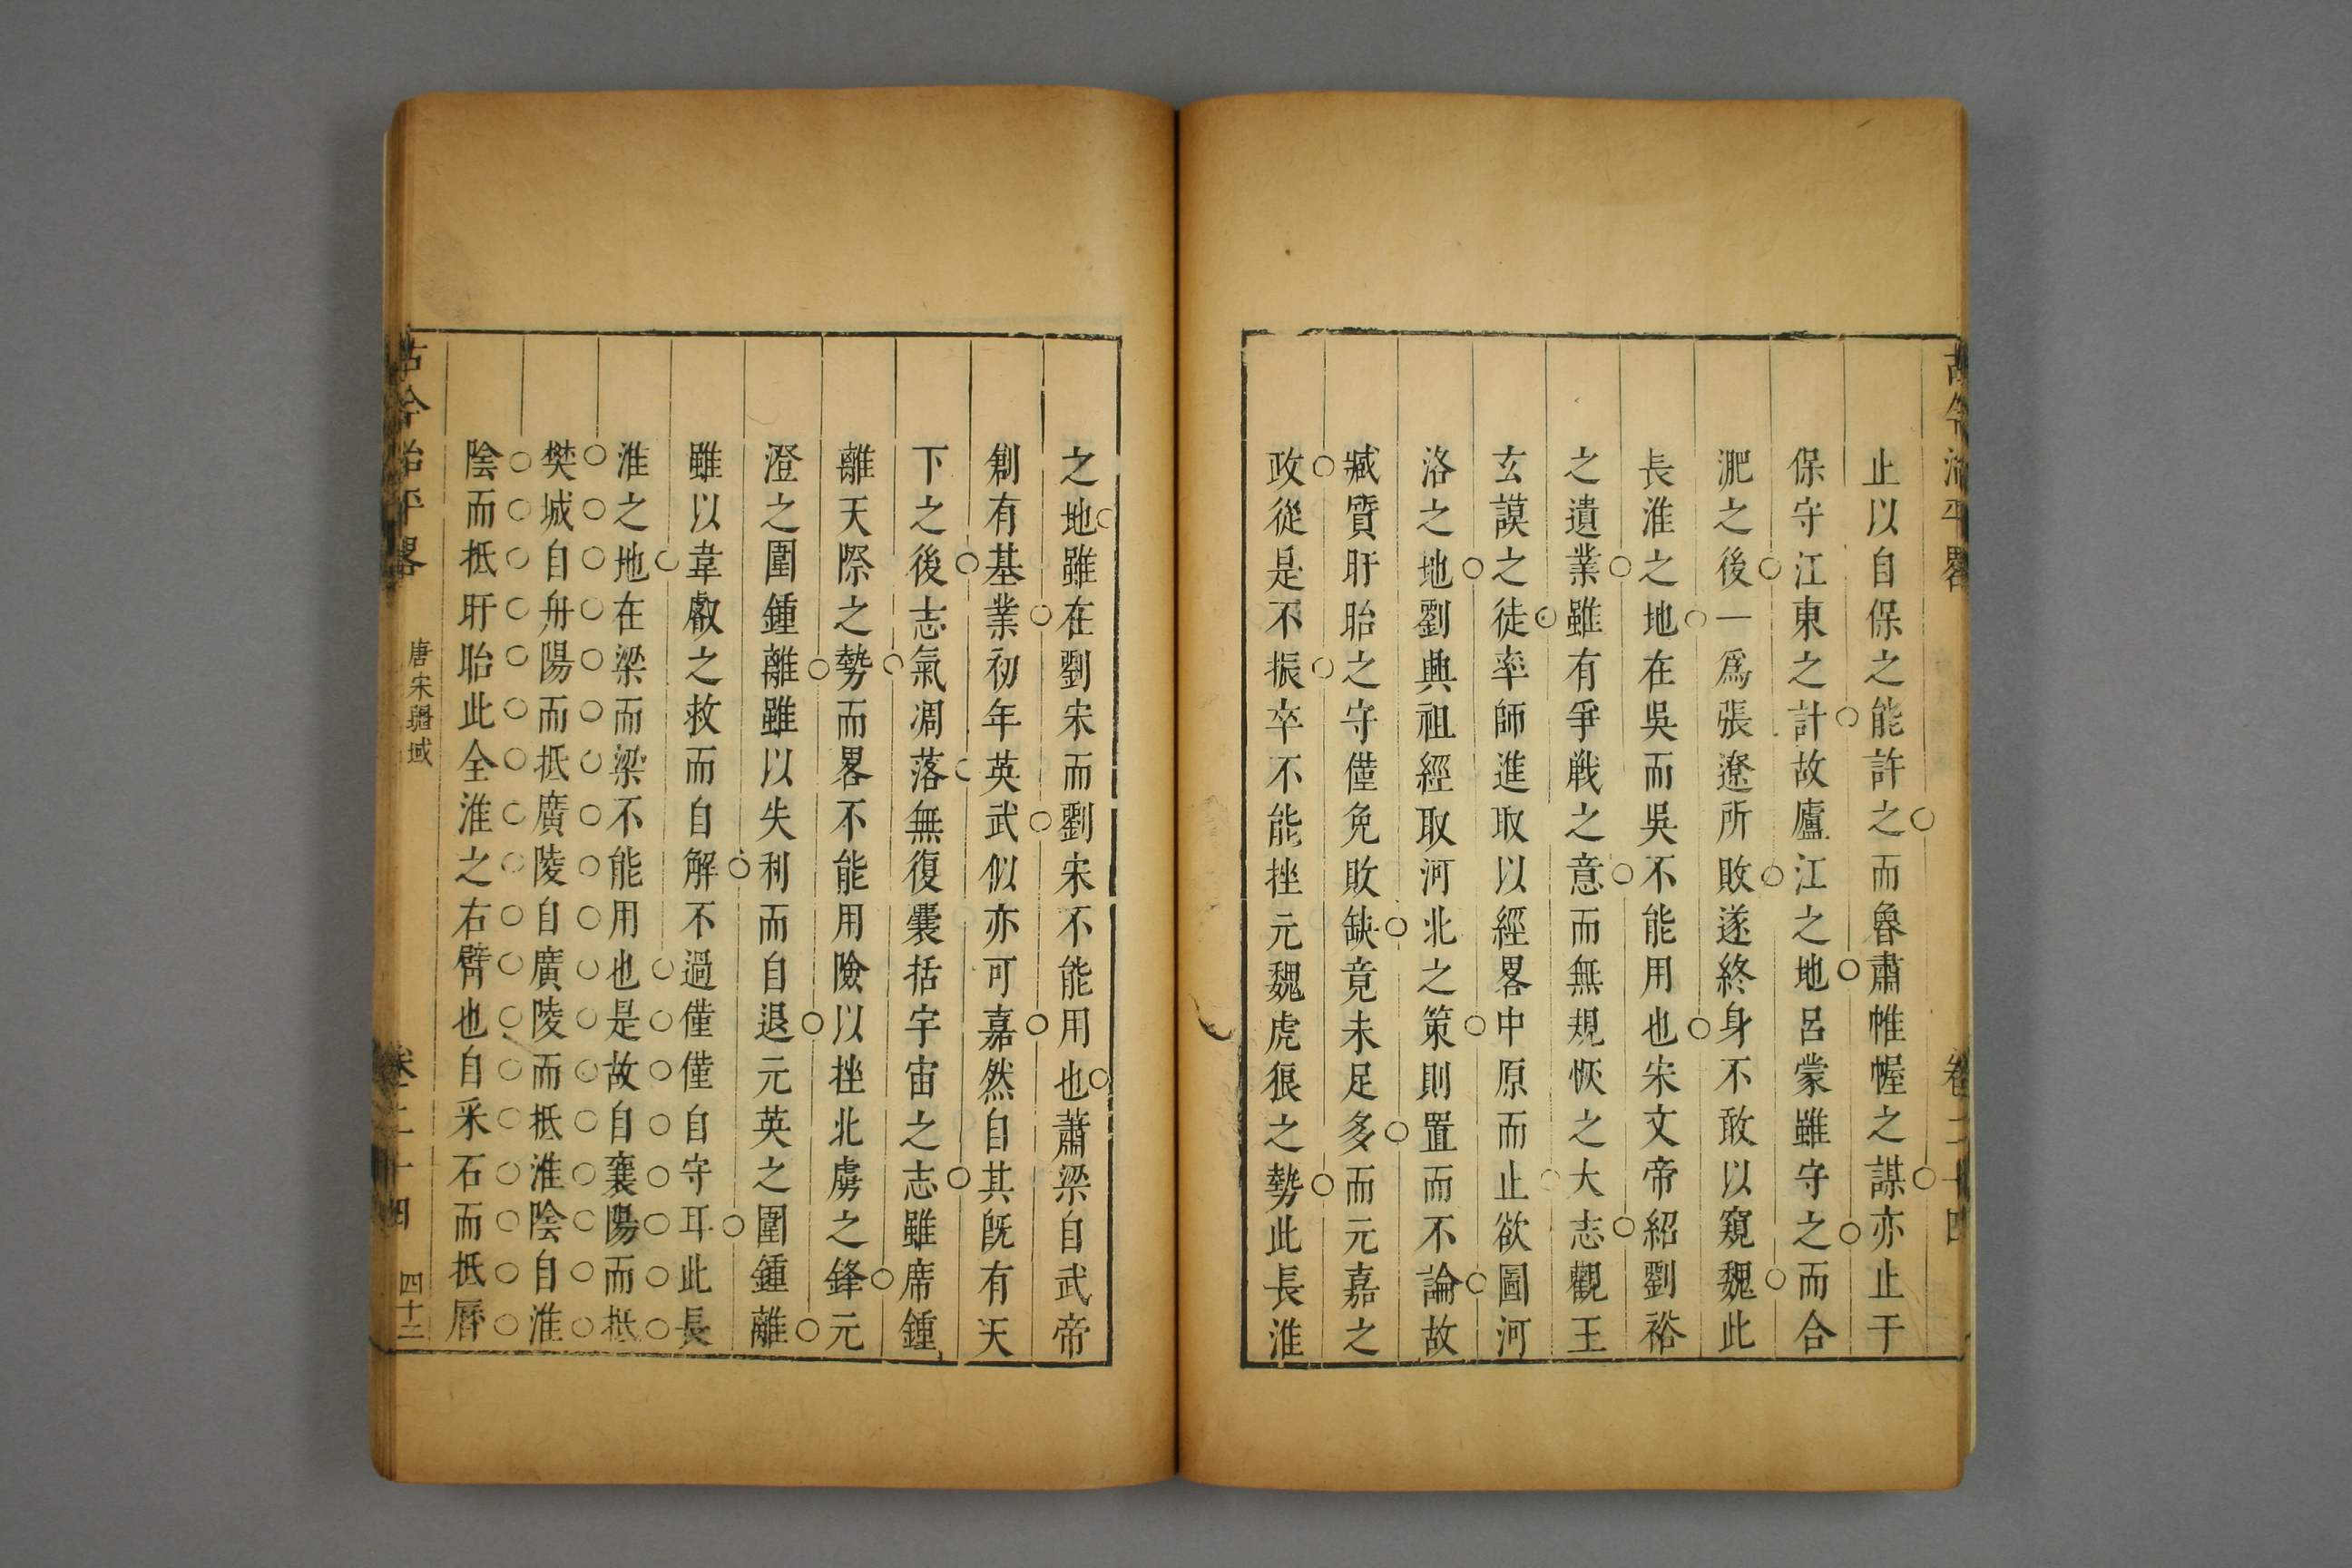 古今治平畧 卷二十四
止以自保之能許之而魯肅帷幄之謀亦止于
保守江東之計故廬江之地呂蒙雖守之而合
淝之後一爲張遼所敗遂終身不敢以窺魏此
長淮之地在吳而吳不能用也宋文帝紹劉裕
之遺業雖有爭戰之意而無規恢之大志觀王
玄謨之徒率師進取以經畧中原而止欲圖河
洛之地劉興祖經取河北之策則置而不論故
臧質盱眙之守僅免敗缺竟未足多而元嘉之
政從是不振卒不能挫元魏虎狼之勢此長淮
之地雖在劉宋而劉宋不能用也蕭梁自武帝
創有基業初年英武似亦可嘉然自其旣有天
下之後志氣凋落無復囊括宇宙之志雖席鍾
離天際之勢而畧不能用險以挫北虜之鋒元
澄之圍鍾離雖以失利而自退元英之圍鍾離
雖以韋叡之救而自解不過僅僅自守耳此長
淮之地在梁而梁不能用也是故自襄陽而抵
樊城自舟陽而抵廣陵自廣陵而抵淮陰自淮
陰而抵盱眙此全淮之右臂也自采石而抵曆
古今治平畧 唐宋疆域 卷二十四 四十二